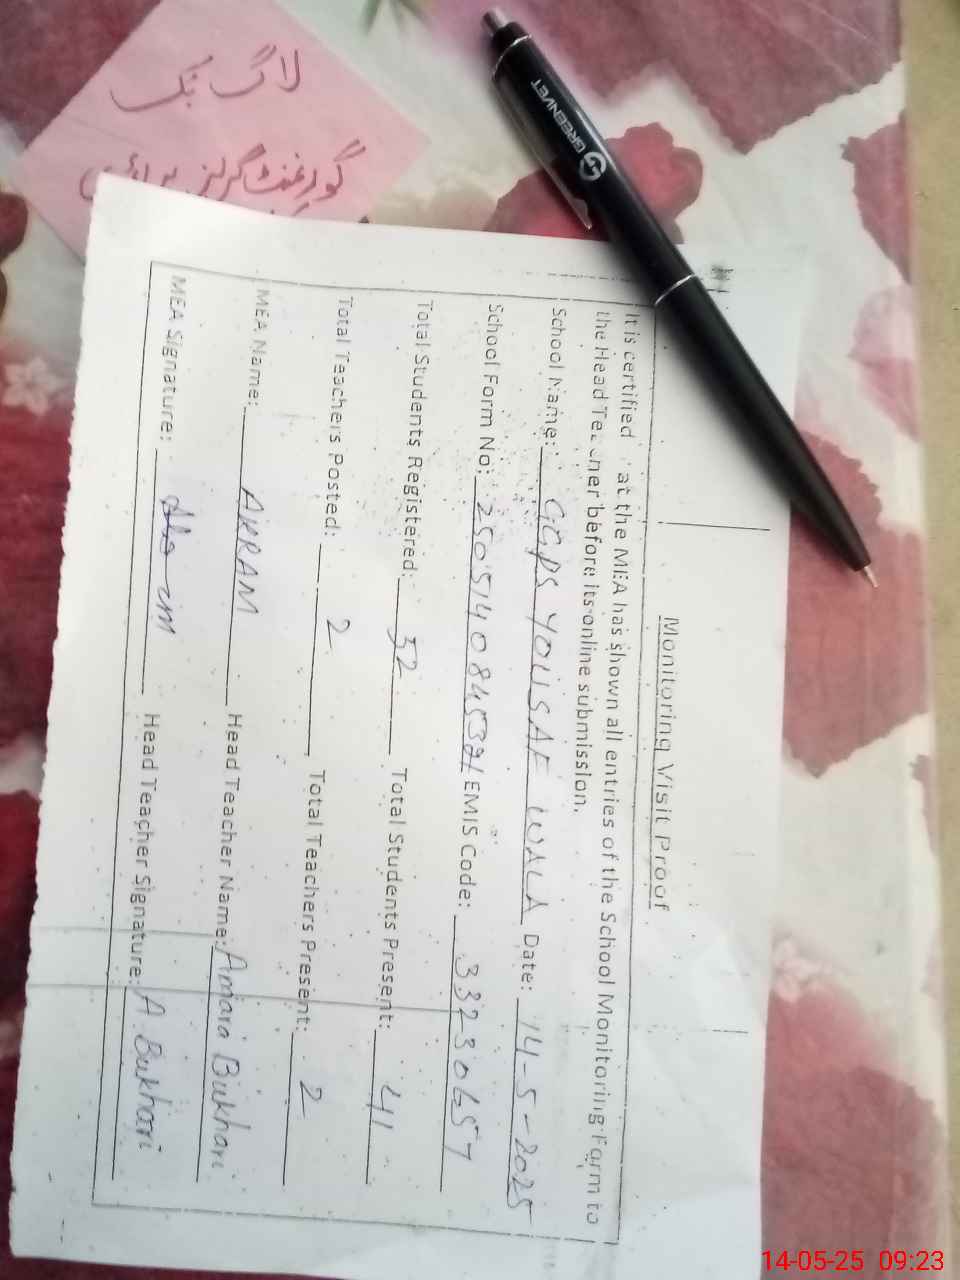 لاگ بک
گورنمنٹ گرلز پرائمری
GREENVET
Monitoring Visit Proof
It is certified at the MEA has shown all entries of the School Monitoring Form to
the Head Teacher before its online submission.
School Name: GGPS YOUSAF WALA Date: 14-5-2025
School Form No: EMIS Code: 33230657
Total Students Registered: 52 Total Students Present: 41
Total Teachers Posted: 2 Total Teachers Present: 2
MEA Name: AKRAM Head Teacher Name: Amara Bukhari
MEA Signature: Head Teacher Signature: A. Bukhari
14-05-25 09:23